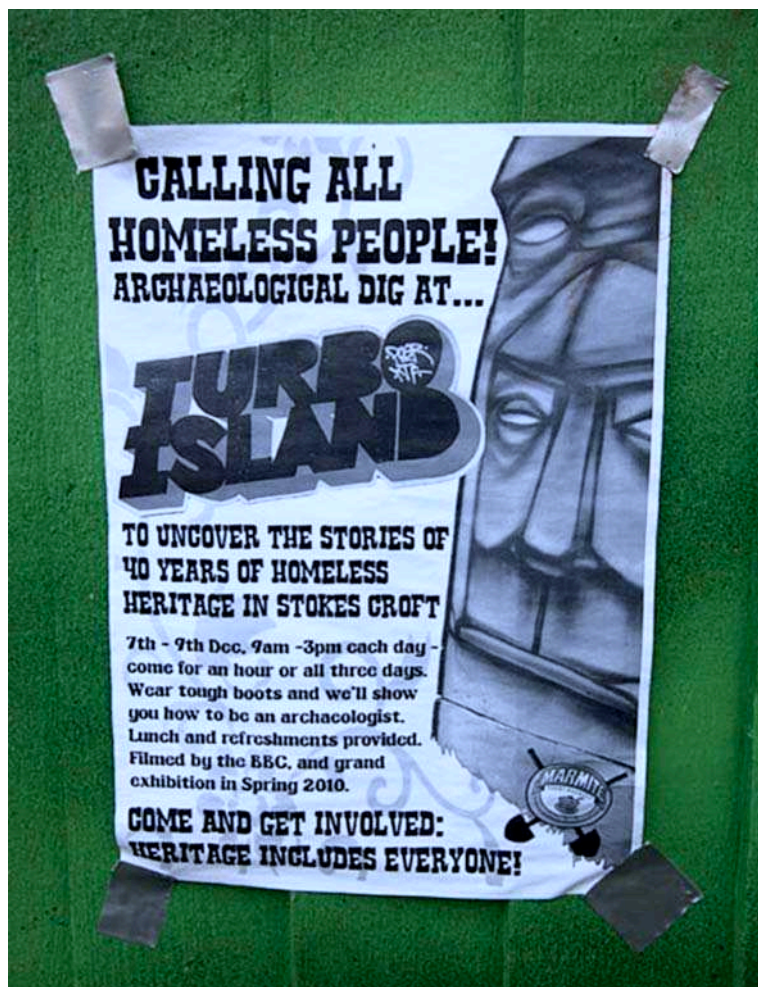 CALLING ALL
HOMELESS PEOPLE!
ARCHAEOLOGICAL DIG AT...
TURBO
ISLAND
TO UNCOVER THE STORIES OF
40 YEARS OF HOMELESS
HERITAGE IN STOKES CROFT
7th - 9th Dec, 9am -3pm each day -
come for an hour or all three days.
Wear tough boots and we'll show
you how to be an archaeologist.
Lunch and refreshments provided.
Filmed by the BBC, and grand
exhibition in Spring 2010.
MARMITE
COME AND GET INVOLVED:
HERITAGE INCLUDES EVERYONE!